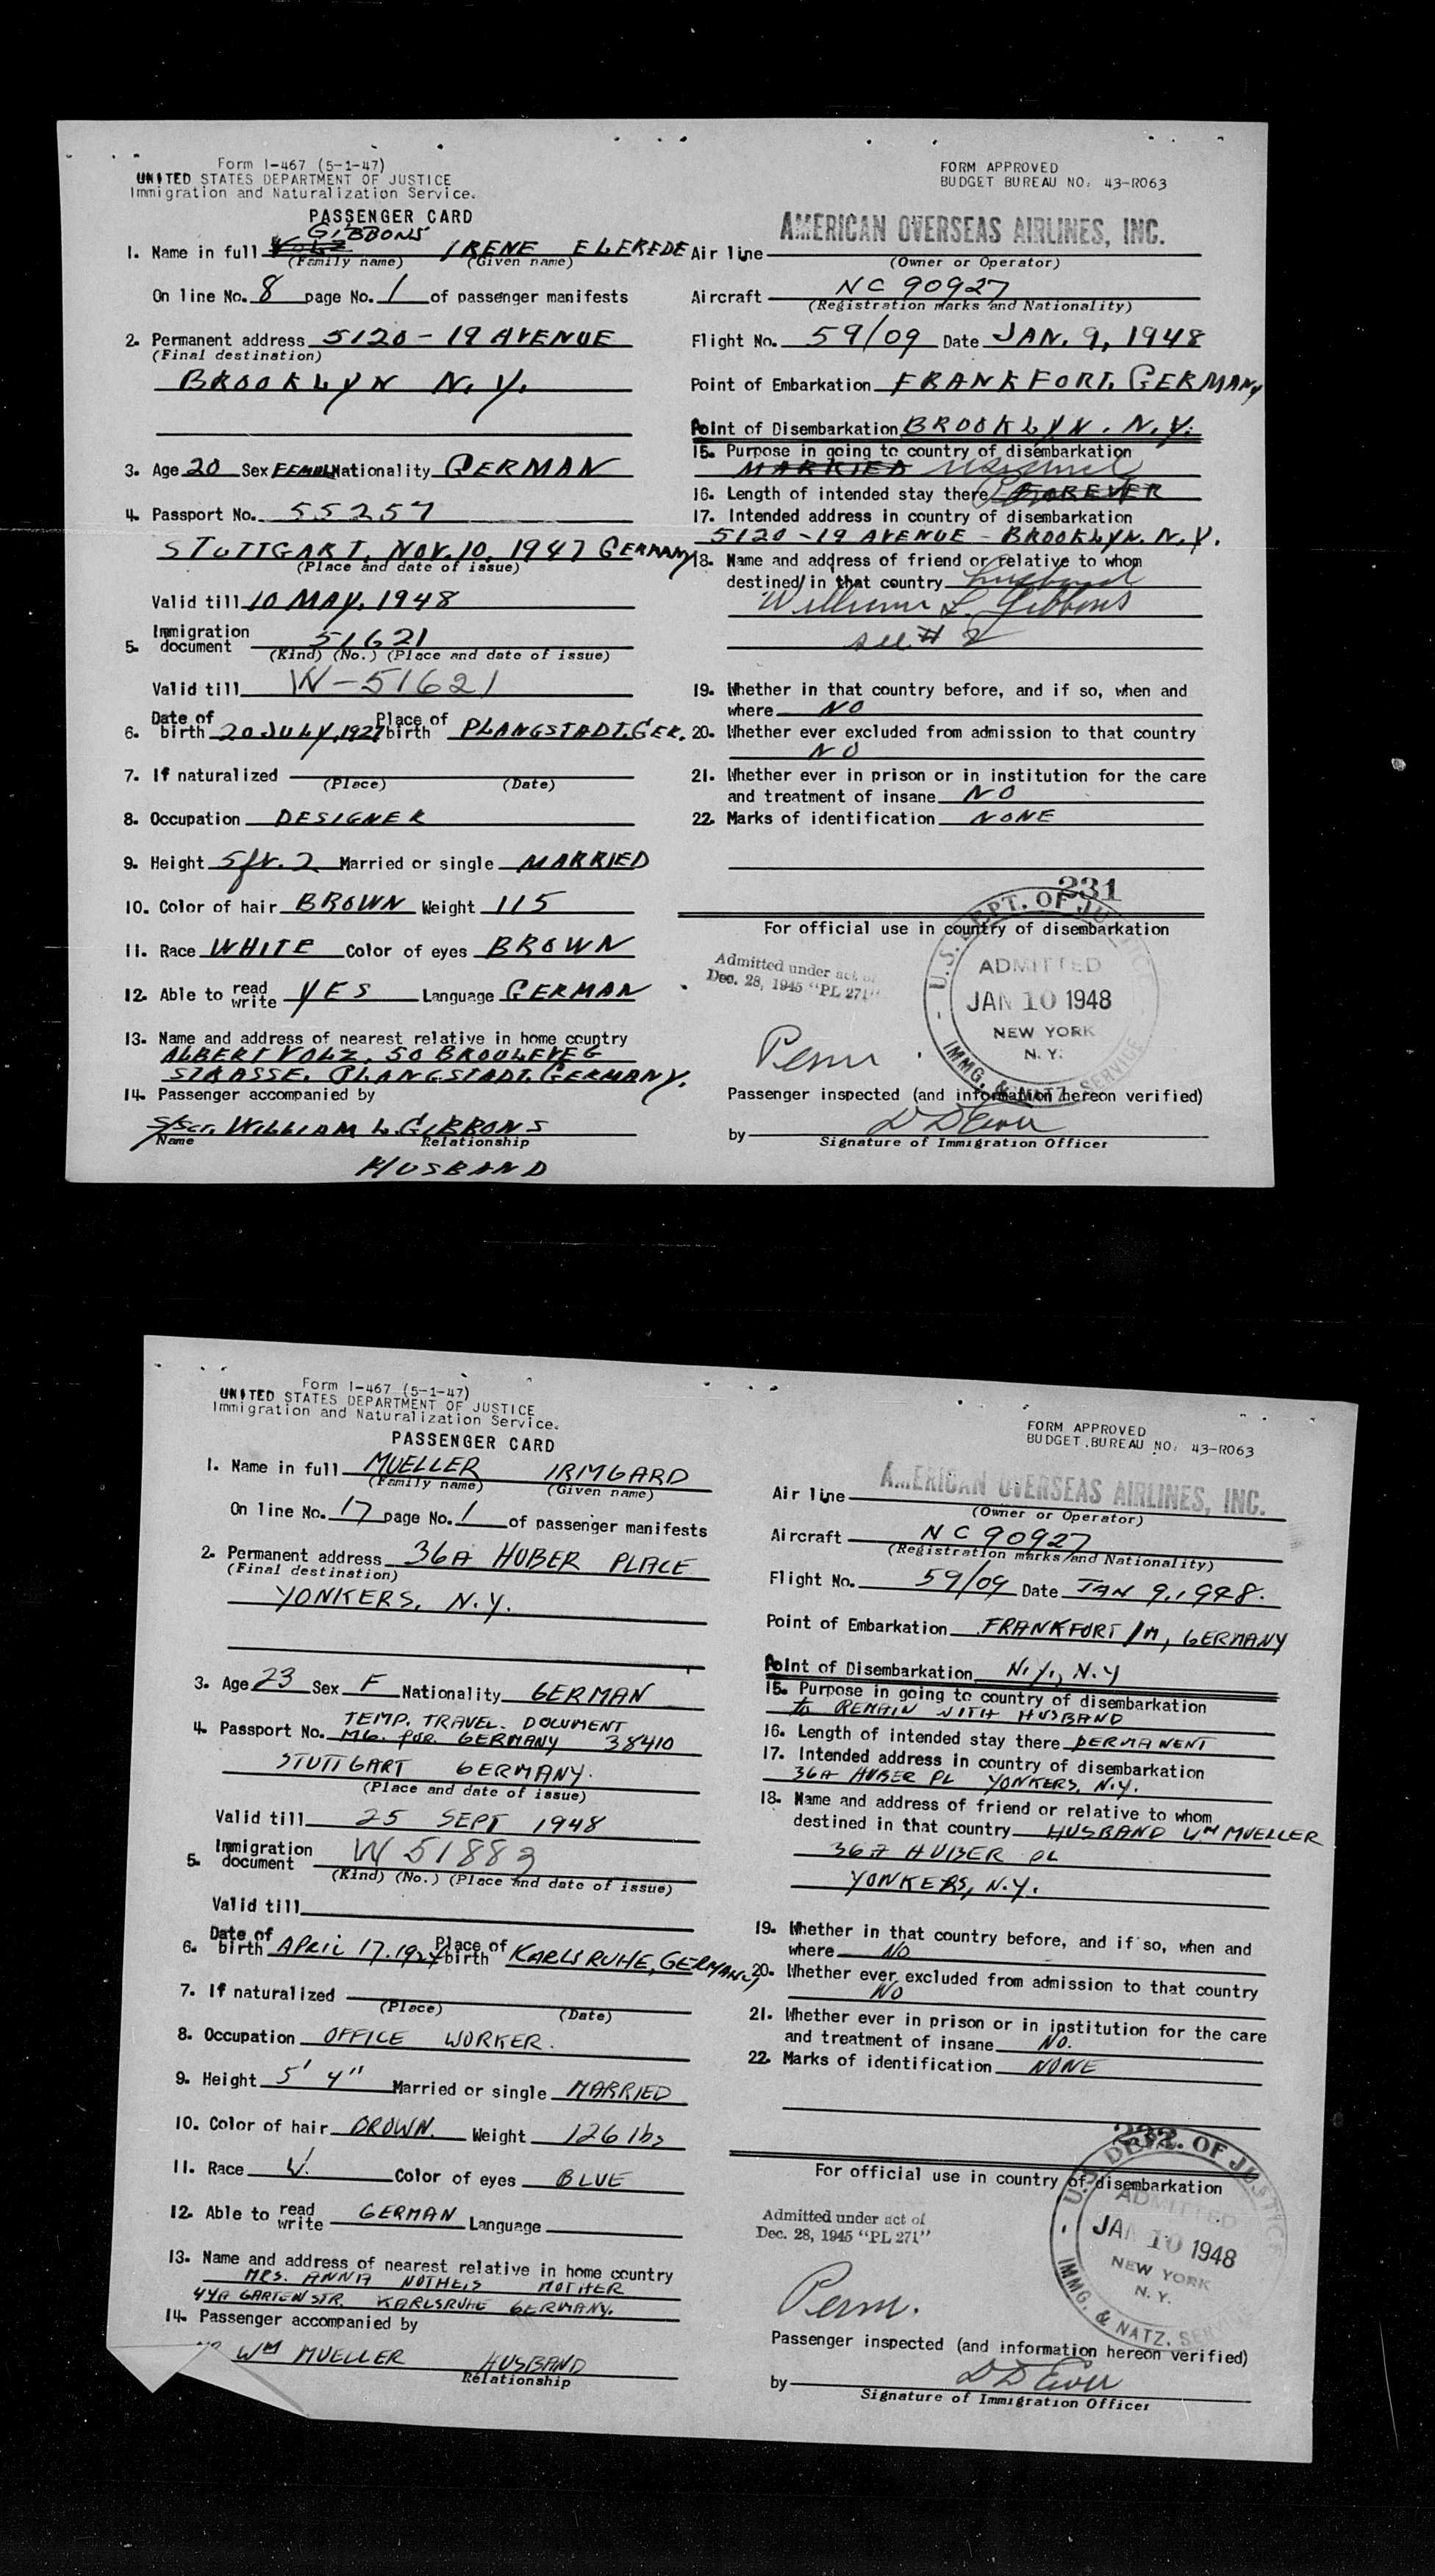 Form I-467 (5-1-47)
UNITED STATES DEPARTMENT OF JUSTICE
Immigration and Naturalization Service.
PASSENGER CARD
GIBBONS
1. Name in full VOLZ IRENE ELFREDE
(Family name) (Given name)
On line No. 8 page No. 1 of passenger manifests
2. Permanent address 5120 - 19 AVENUE
(Final destination)
BROOKLYN N.Y.
3. Age 20 Sex FEMALE Nationality GERMAN
4. Passport No. 55257
STUTTGART, NOV. 10, 1947 GERMANY
(Place and date of issue)
Valid till 10 MAY, 1948
5. Immigration document 51621
(Kind) (No.) (Place and date of issue)
Valid till W-51621
6. Date of birth 20 JULY, 1927 Place of birth PLANGSTADT, GER.
7. If naturalized
(Place) (Date)
8. Occupation DESIGNER
9. Height 5 ft. 2 Married or single MARRIED
10. Color of hair BROWN Weight 115
11. Race WHITE Color of eyes BROWN
12. Able to read write YES Language GERMAN
13. Name and address of nearest relative in home country
ALBERT VOLZ, 50
STRASSE, PLANGSTADT, GERMANY.
14. Passenger accompanied by
S/SGT. WILLIAM L. GIBBONS
Name Relationship
HUSBAND
FORM APPROVED
BUDGET BUREAU NO. 43-R063
AMERICAN OVERSEAS AIRLINES, INC.
Air line
(Owner or Operator)
Aircraft NC 90927
(Registration marks and Nationality)
Flight No. 59/09 Date JAN. 9, 1948
Point of Embarkation FRANKFORT, GERMANY
Point of Disembarkation BROOKLYN. N.Y.
15. Purpose in going to country of disembarkation
MARRIED
16. Length of intended stay there FOREVER
17. Intended address in country of disembarkation
5120 - 19 AVENUE - BROOKLYN. N.Y.
18. Name and address of friend or relative to whom
destined in that country husband
William L. Gibbons
see # 2
19. Whether in that country before, and if so, when and
where NO
20. Whether ever excluded from admission to that country
NO
21. Whether ever in prison or in institution for the care
and treatment of insane NO
22. Marks of identification NONE
231
For official use in country of disembarkation
Admitted under act of
Dec. 28, 1945 "PL 271"
U.S. DEPT. OF JUSTICE
ADMITTED
JAN 10 1948
NEW YORK
N.Y.
IMMG. & NATZ. SERVICE
Perm
Passenger inspected (and information hereon verified)
by
Signature of Immigration Officer
Form I-467 (5-1-47)
UNITED STATES DEPARTMENT OF JUSTICE
Immigration and Naturalization Service.
PASSENGER CARD
1. Name in full MUELLER IRMGARD
(Family name) (Given name)
On line No. 17 page No. 1 of passenger manifests
2. Permanent address 36A HUBER PLACE
(Final destination)
YONKERS, N.Y.
3. Age 23 Sex F Nationality GERMAN
TEMP. TRAVEL. DOCUMENT
4. Passport No. MG. FOR. GERMANY 38410
STUTTGART GERMANY.
(Place and date of issue)
Valid till 25 SEPT 1948
5. Immigration document W 51883
(Kind) (No.) (Place and date of issue)
Valid till
6. Date of birth APRIL 17. 1924 Place of birth KARLSRUHE, GERMANY
7. If naturalized
(Place) (Date)
8. Occupation OFFICE WORKER.
9. Height 5' 4" Married or single MARRIED
10. Color of hair BROWN. Weight 126 lbs
11. Race W. Color of eyes BLUE
12. Able to read write GERMAN Language
13. Name and address of nearest relative in home country
MRS. ANNA NOTHEIS MOTHER
44A GARTENSTR. KARLSRUHE GERMANY.
14. Passenger accompanied by
WM MUELLER HUSBAND
Relationship
FORM APPROVED
BUDGET BUREAU NO. 43-R063
AMERICAN OVERSEAS AIRLINES, INC.
Air line
(Owner or Operator)
Aircraft NC 90927
(Registration marks and Nationality)
Flight No. 59/09 Date JAN 9, 1948.
Point of Embarkation FRANKFORT /M, GERMANY
Point of Disembarkation N.Y., N.Y
15. Purpose in going to country of disembarkation
to REMAIN WITH HUSBAND
16. Length of intended stay there PERMANENT
17. Intended address in country of disembarkation
36A HUBER PL YONKERS, N.Y.
18. Name and address of friend or relative to whom
destined in that country HUSBAND WM MUELLER
36A HUBER PL
YONKERS, N.Y.
19. Whether in that country before, and if so, when and
where NO
20. Whether ever excluded from admission to that country
NO
21. Whether ever in prison or in institution for the care
and treatment of insane NO.
22. Marks of identification NONE
232
For official use in country of disembarkation
Admitted under act of
Dec. 28, 1945 "PL 271"
U.S. DEPT. OF JUSTICE
ADMITTED
JAN 10 1948
NEW YORK
N.Y.
IMMG. & NATZ. SERVICE
Perm.
Passenger inspected (and information hereon verified)
by
Signature of Immigration Officer